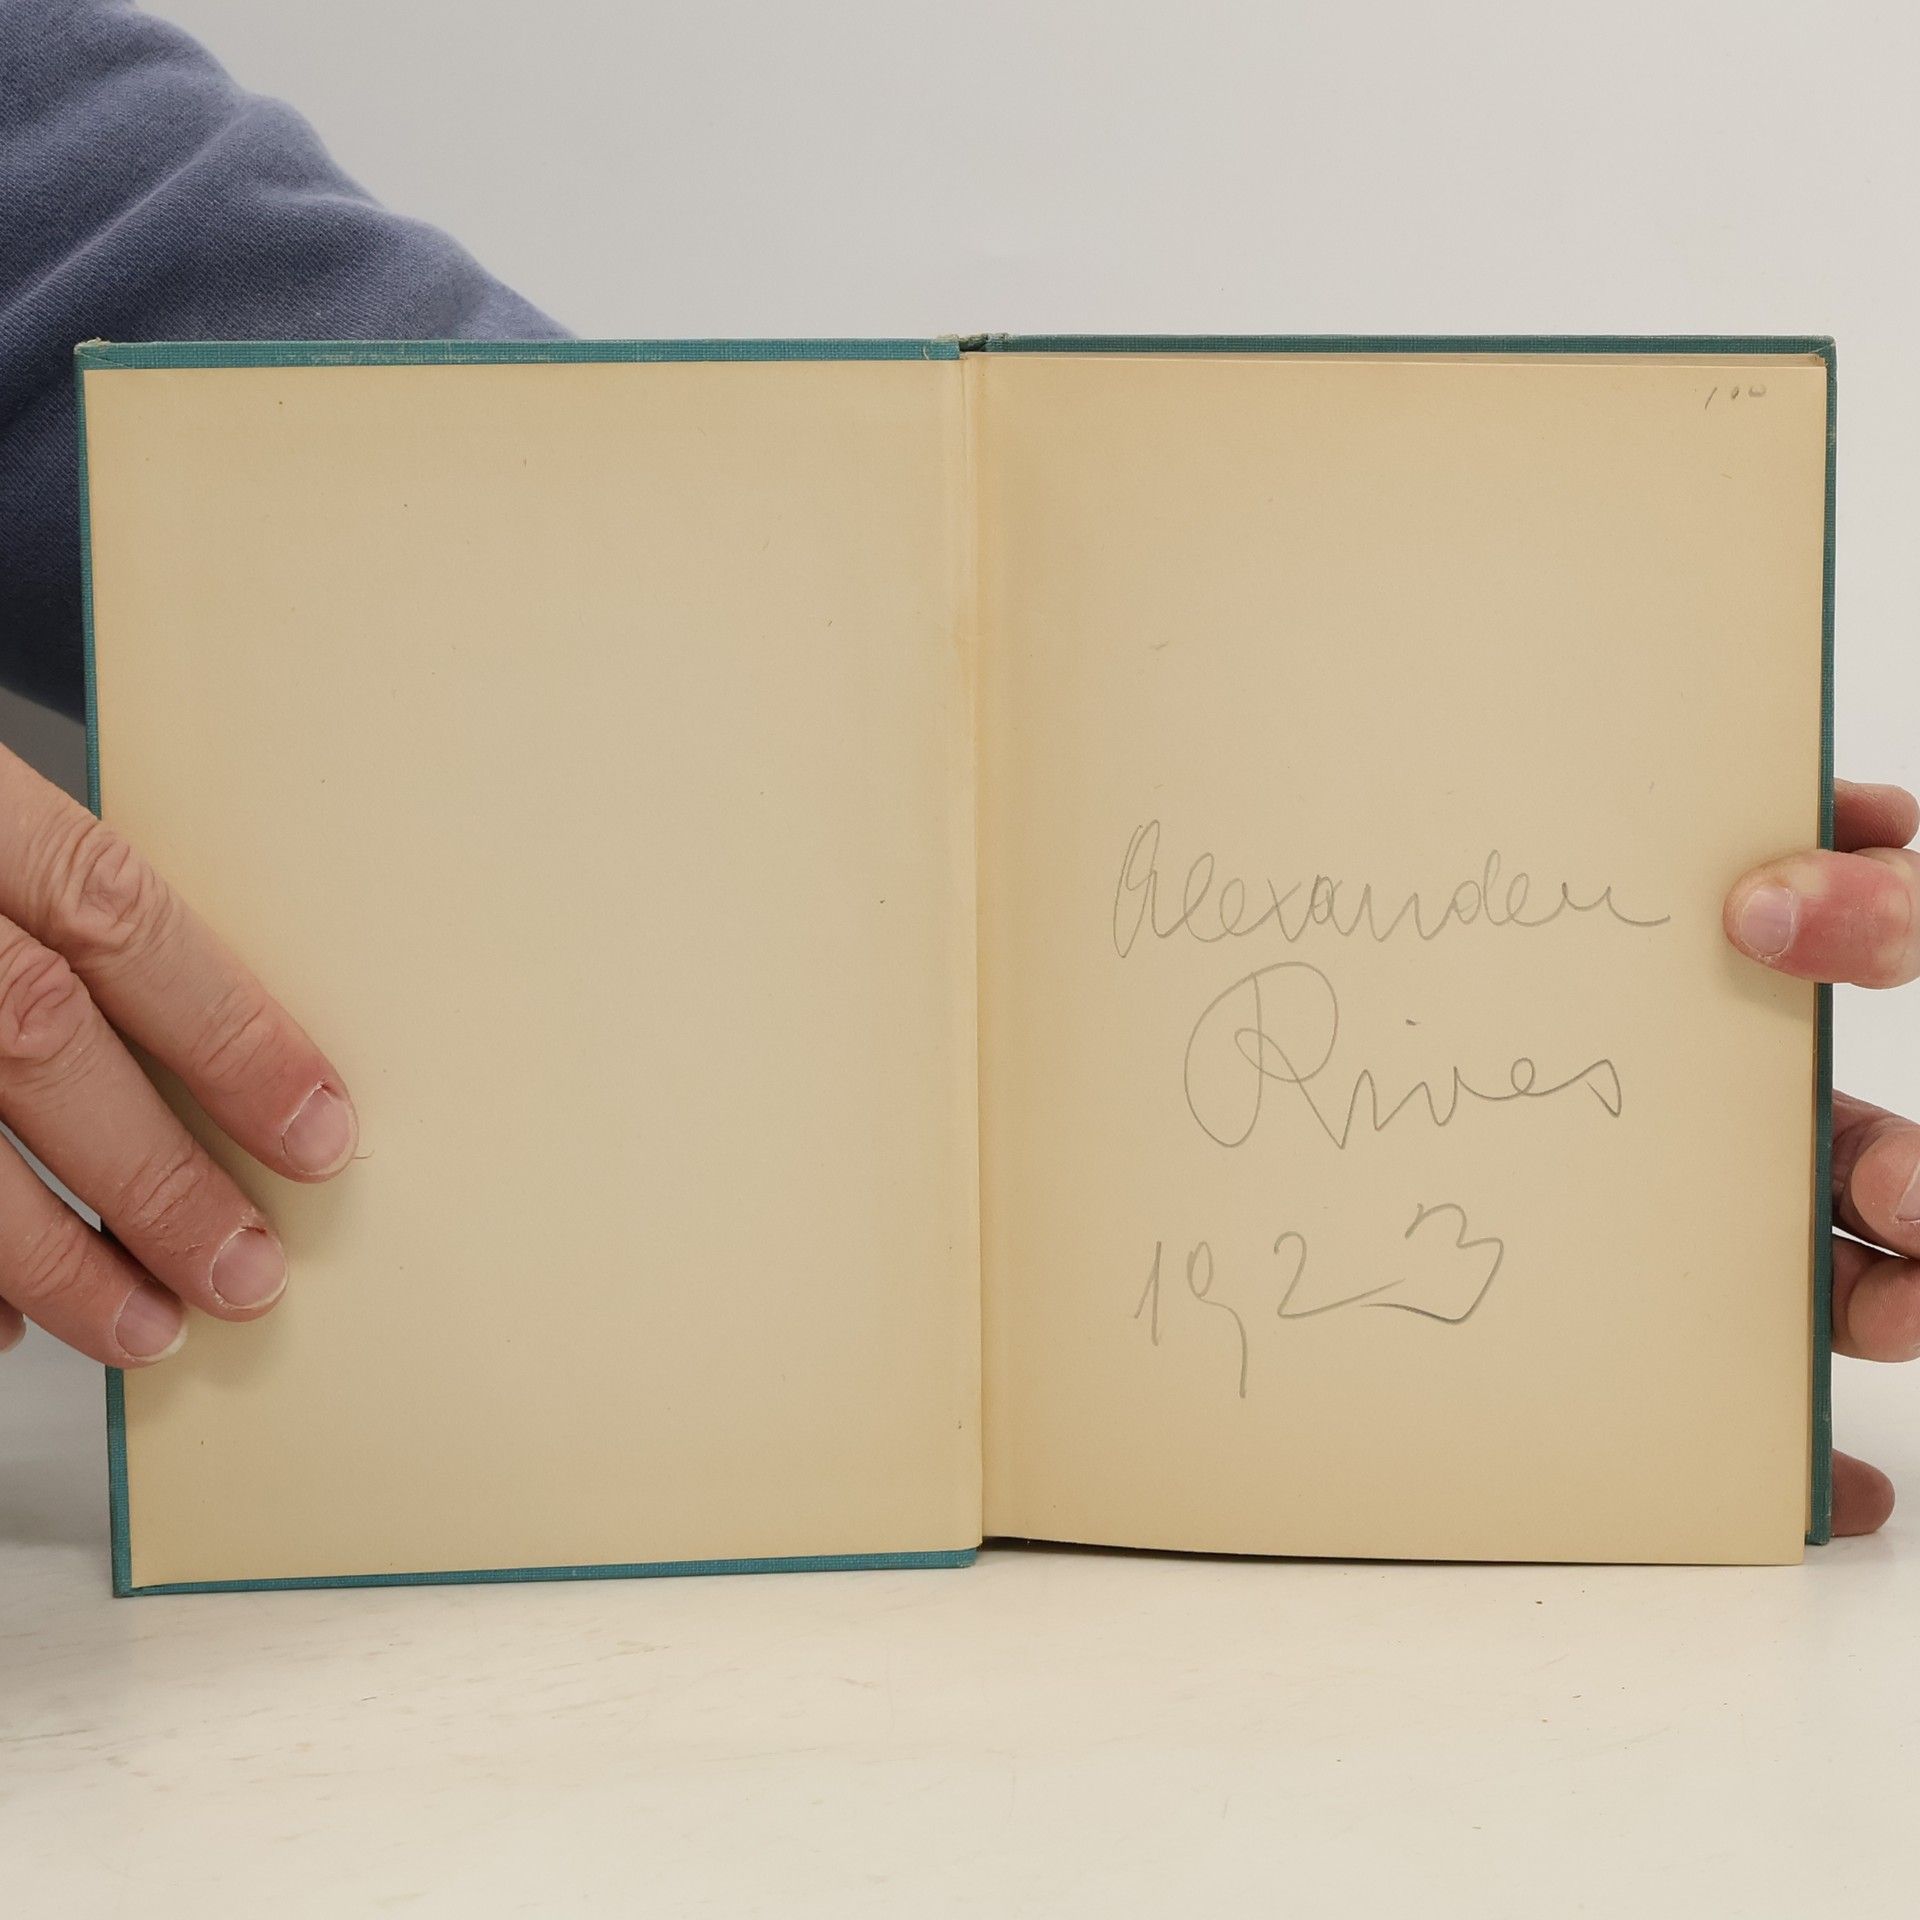 100
Alexander
Rives
1923